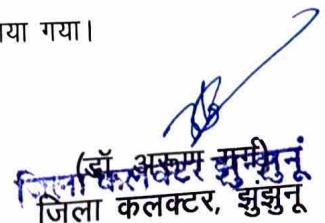 या गया।
(डॉ. अरूण गर्ग)
जिला कलक्टर झुन्झुनूं
जिला कलक्टर, झुंझुनू